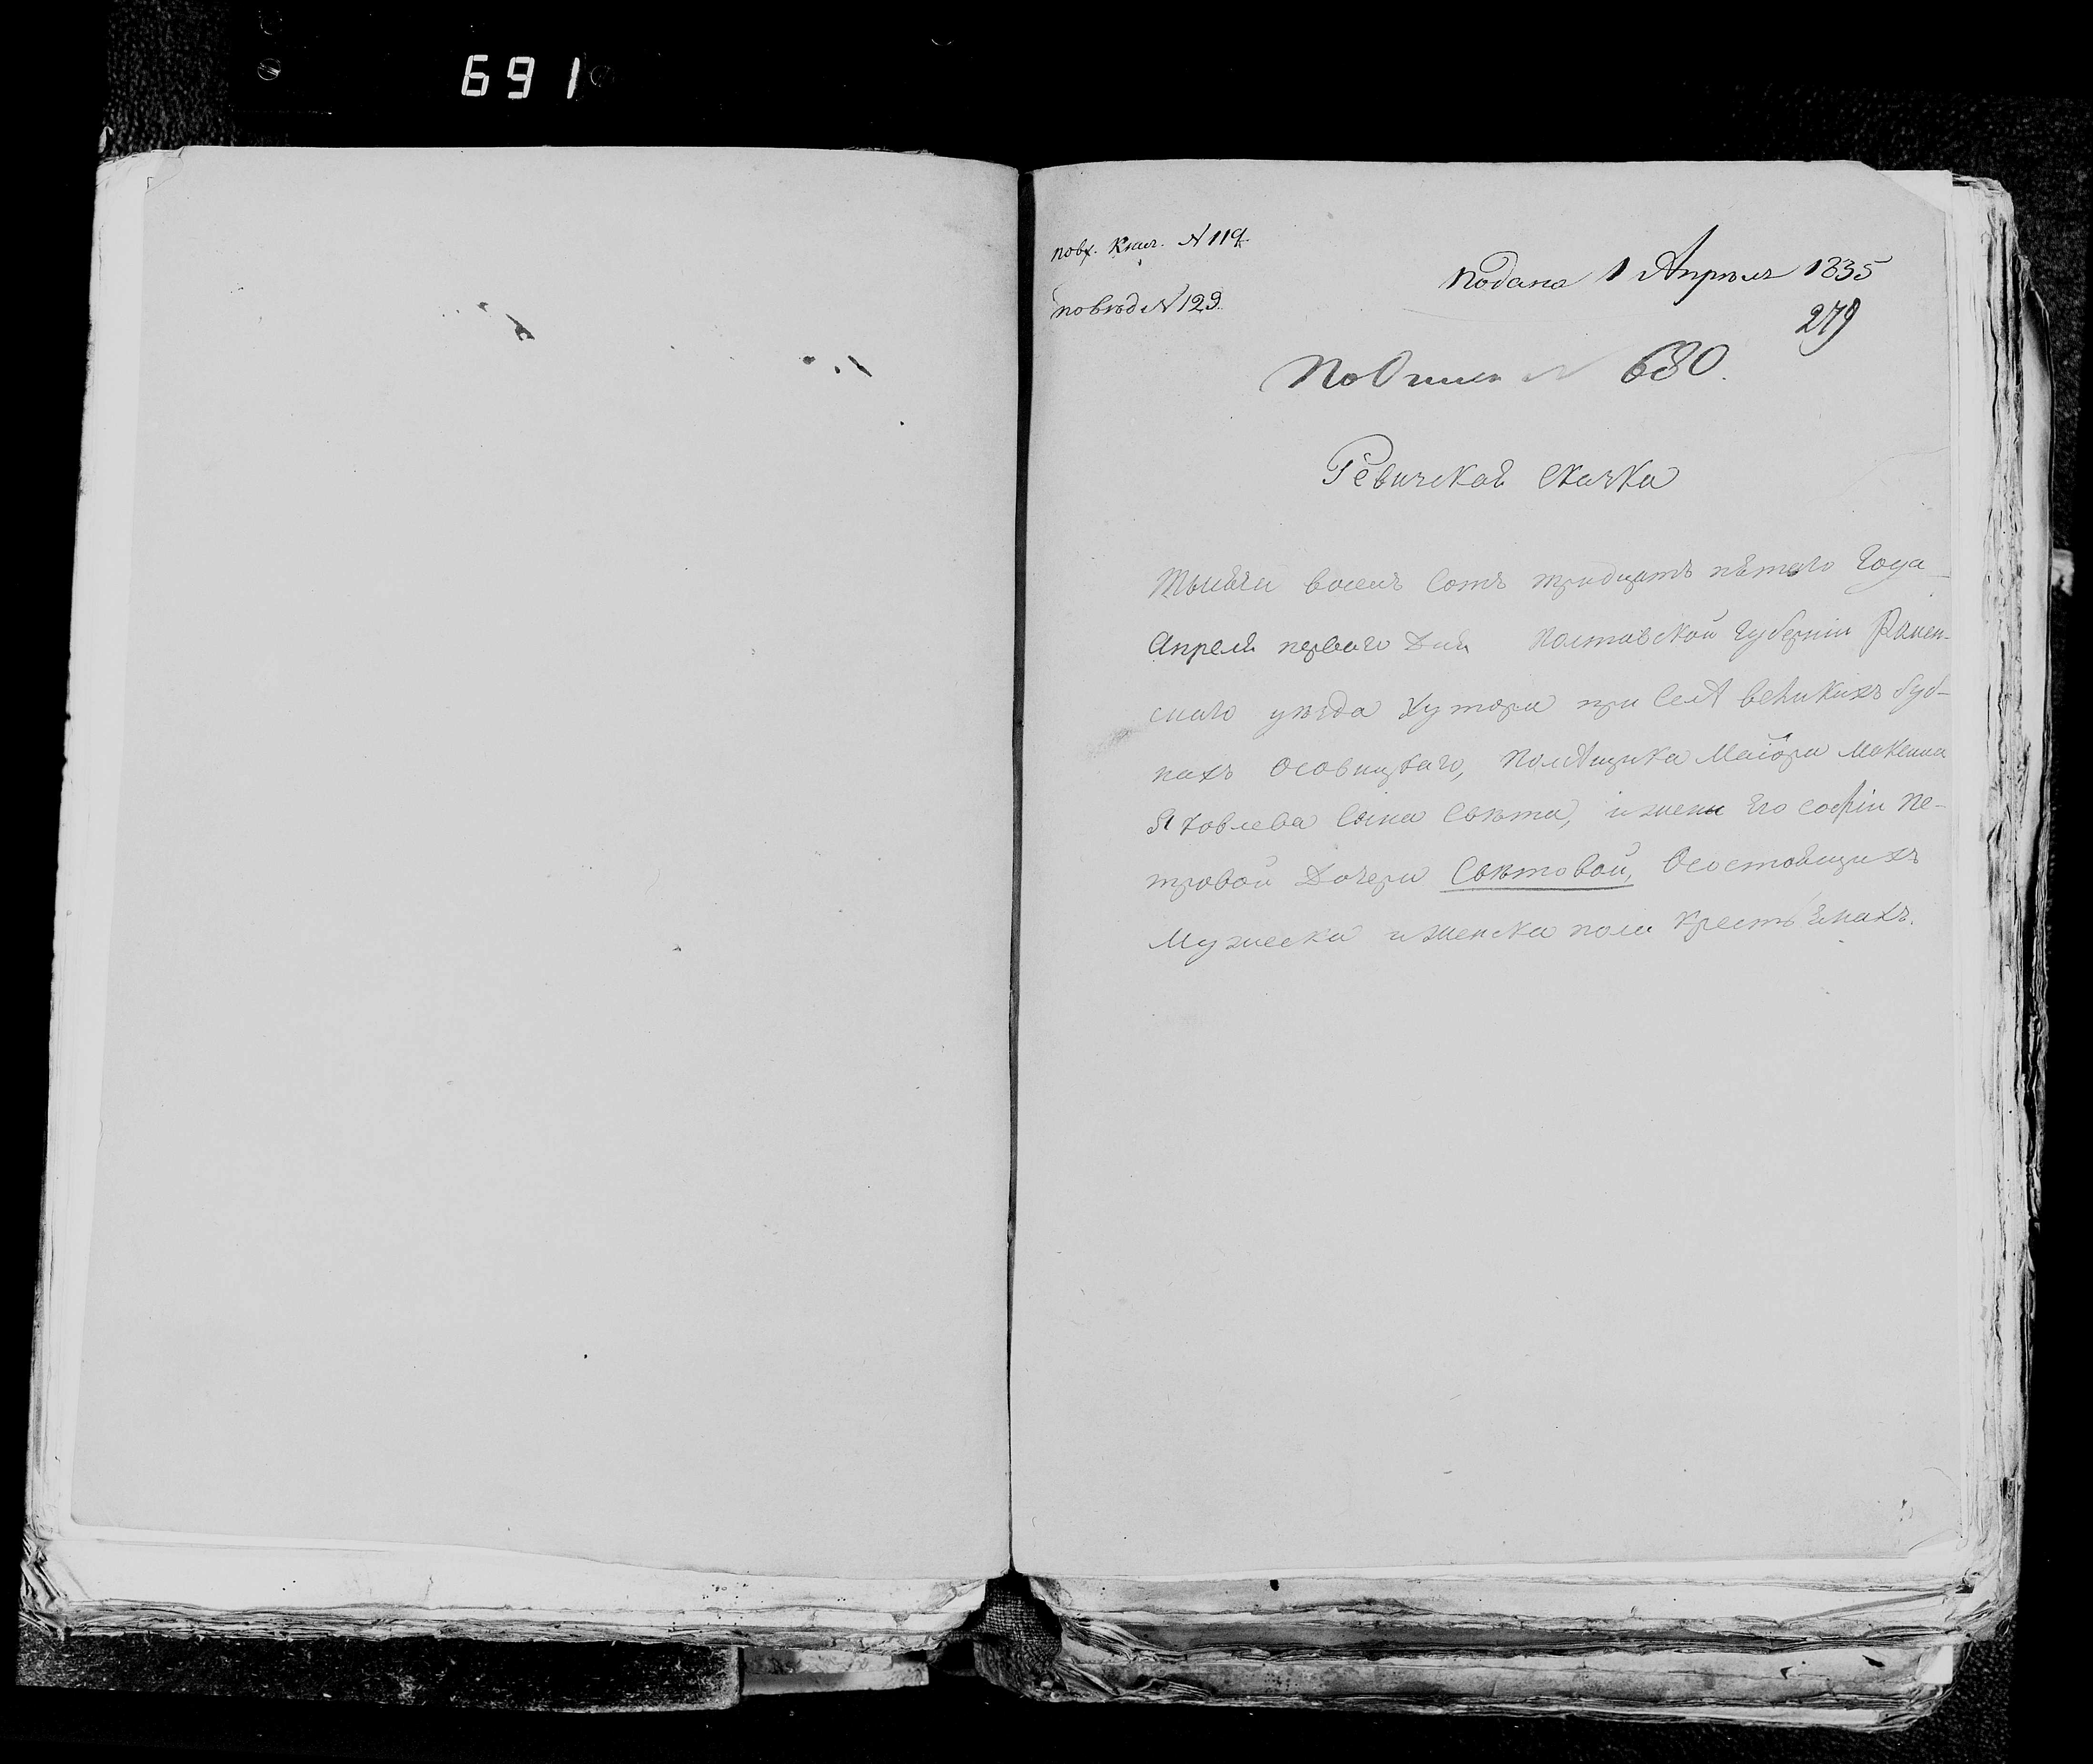 691
повх. Книг. N 119
повѣд N 129.
подана 1 Апрѣля 1835
279
По Описи N 680.
Ревизская скаска
Тысяча восемъ Сотъ тридцатъ пятого Года
Апреля первого Дня Полтавской Губерніи Ромен-
скаго уѣзда Хутора при Селѣ великихъ буб-
нахъ Осовицкаго, Помѣщика Маіора Максима
Яковлева Сына Свѣта, и жены Его Софіи Пе-
тровой Дочери Свѣтовой, Осостоящихъ
Мужеска и женска пола крестьянахъ.